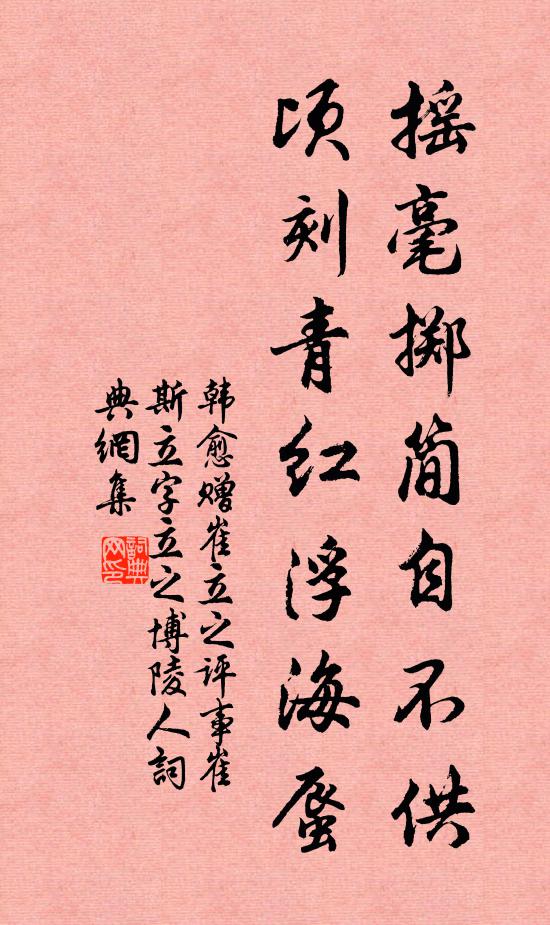 摇毫掷简自不供
顷刻青红浮海蜃
韩愈赠崔立之评事崔
斯立字立之博陵人词
典網集
詞典網印